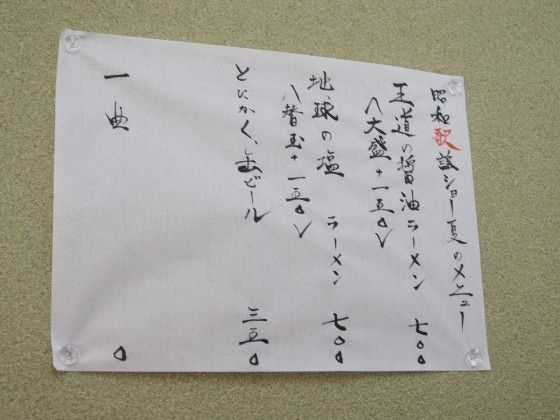 昭和歌謡ショー夏のメニュー
王道の醤油ラーメン 七〇〇
〈大盛+一五〇〉
地球の塩 ラーメン 七〇〇
〈替玉+一五〇〉
とにかく、缶ビール 三五〇
一曲 〇